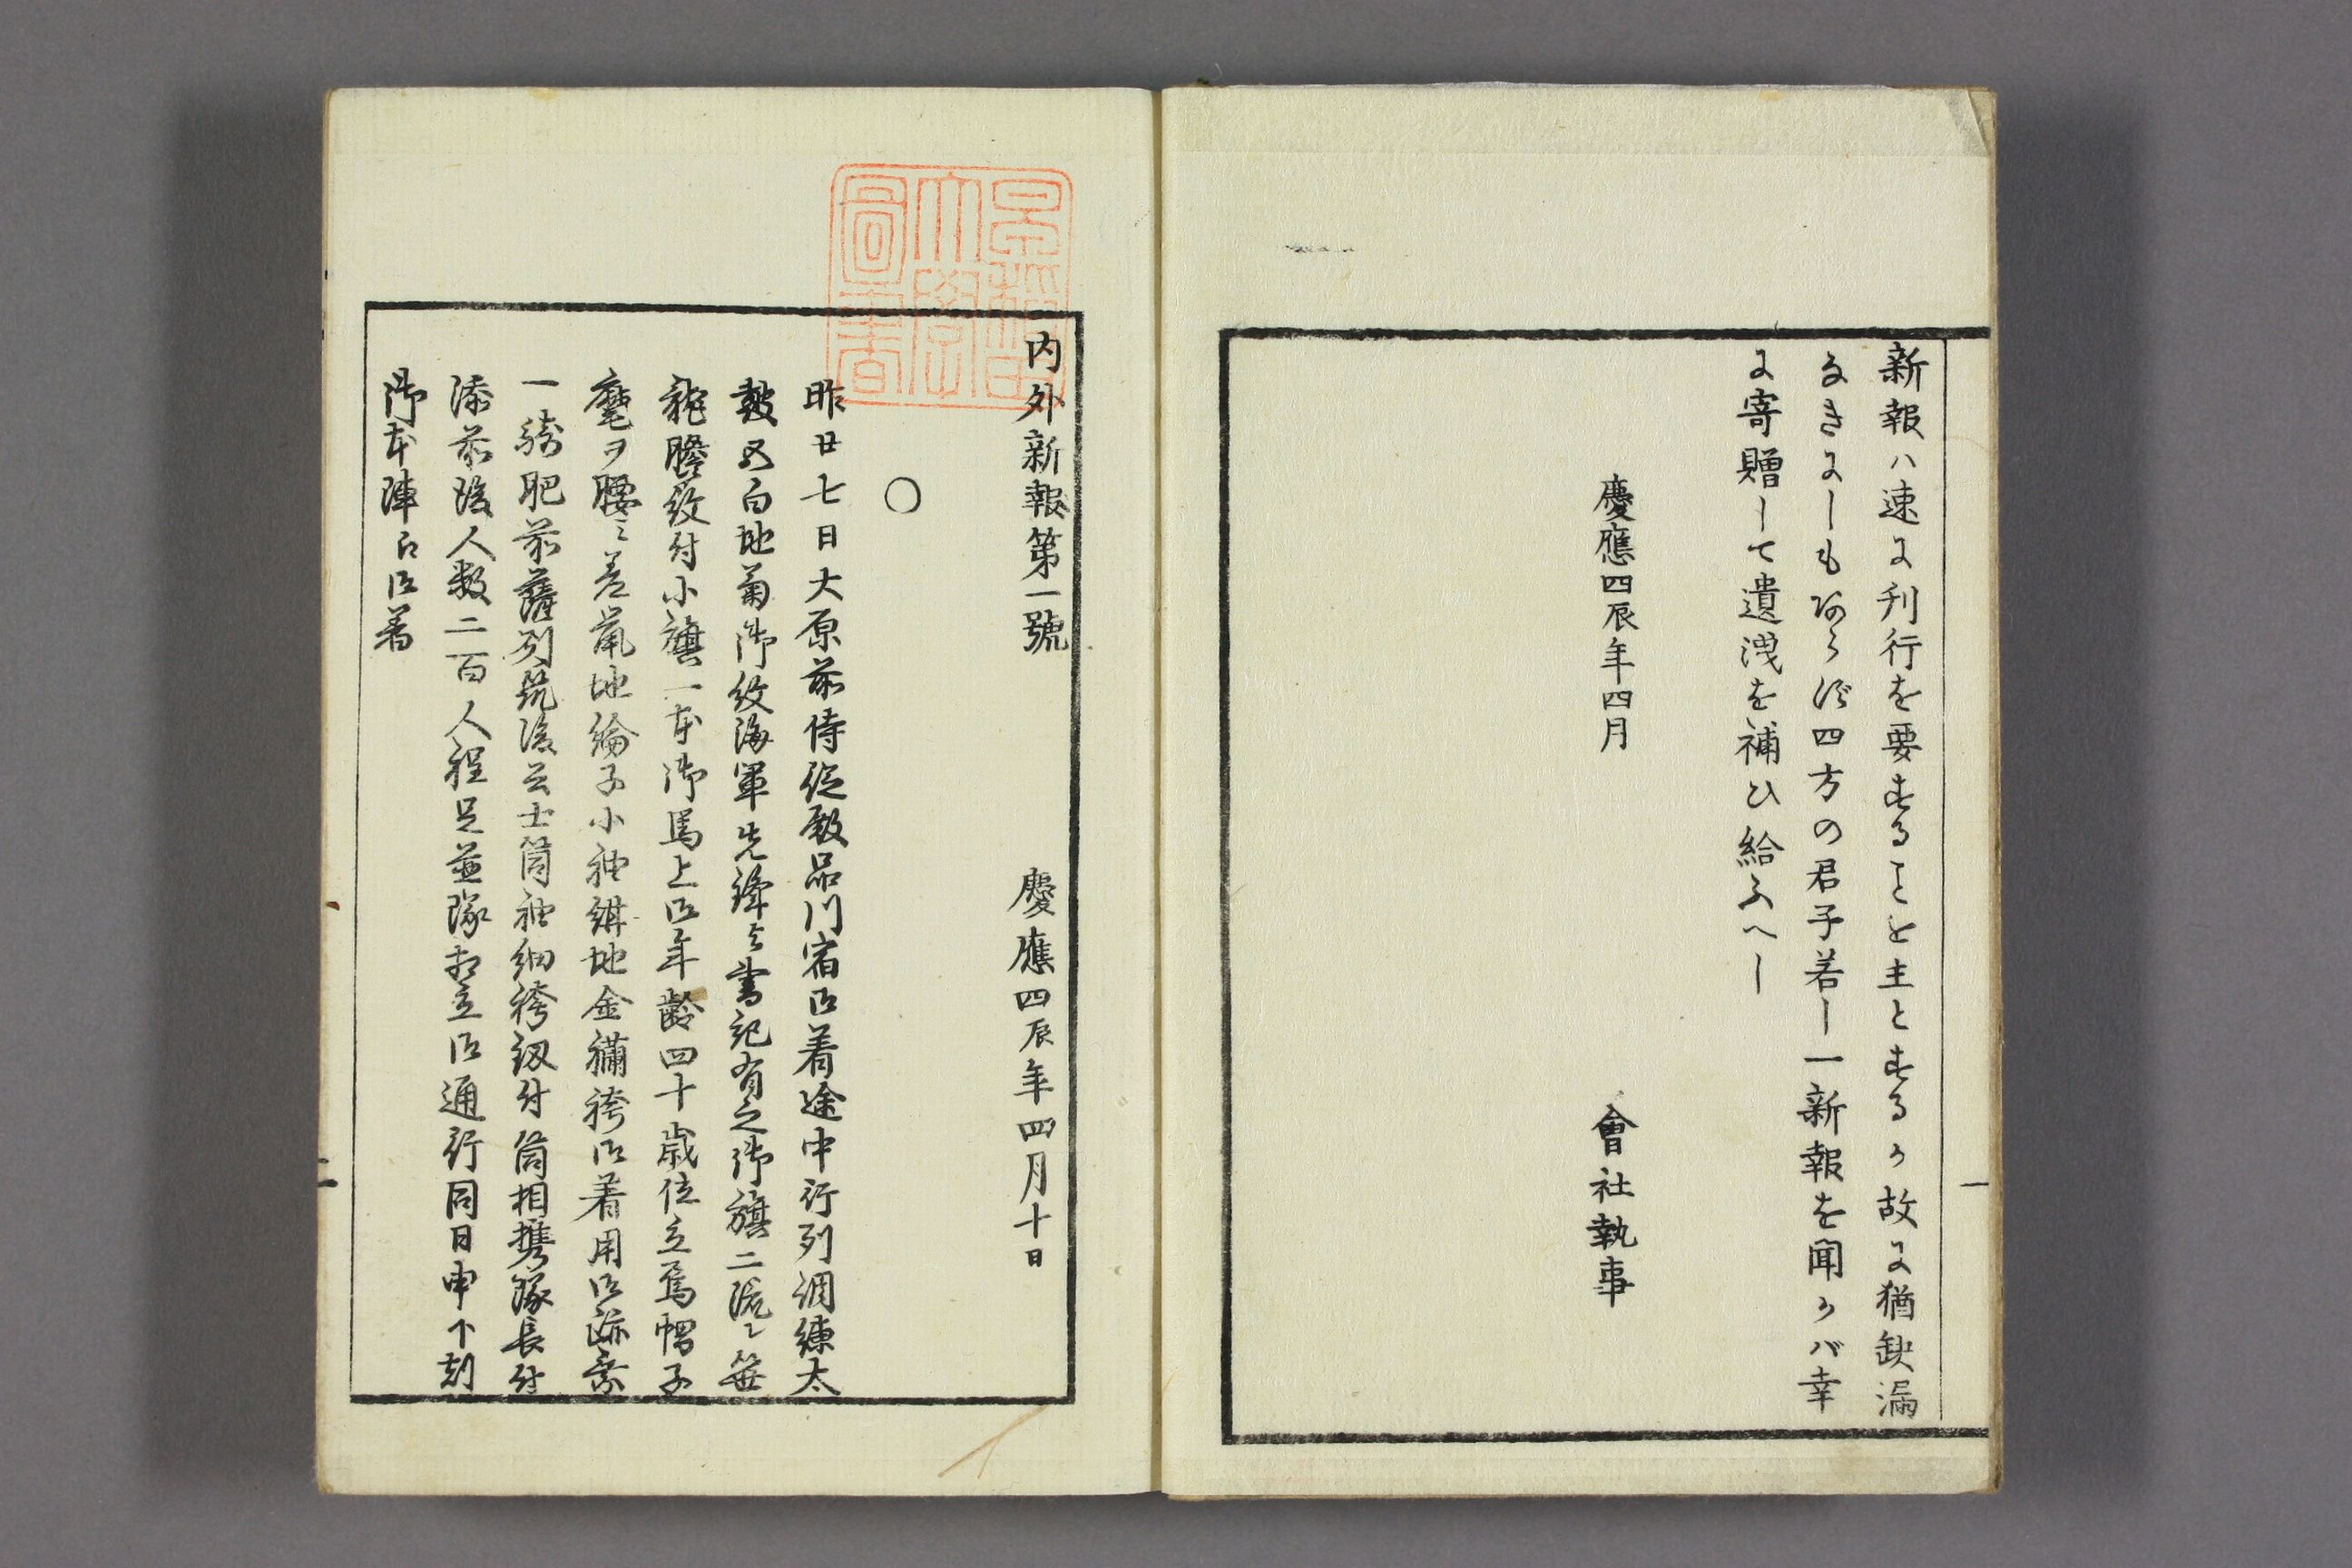 新報ハ速に刊行を要することを主とするか故に猶缺漏
なきにしもあらず四方の君子若し一新報を聞かバ幸
に寄贈して遺洩を補ひ給ふへし
慶應四辰年四月
會社執事
一
内外新報第一號
慶應四辰年四月十日
○
昨廿七日大原前侍従殿品川宿御着途中行列調練太
鼓五白地菊御紋海軍先鋒与書記有之御旗二流ニ笹
龍膽紋付小旗一本御馬上御年齢四十歳位立烏帽子
麾ヲ腰ニ差 地綸子小袖 地金襴袴御着用御跡乗
一騎肥前薩列筑後云士筒袖細袴釼付筒相携隊長付
添前後人数二百人程足並隊相立御通行同日申下刻
御本陣江御着
二
早稲田大學圖書